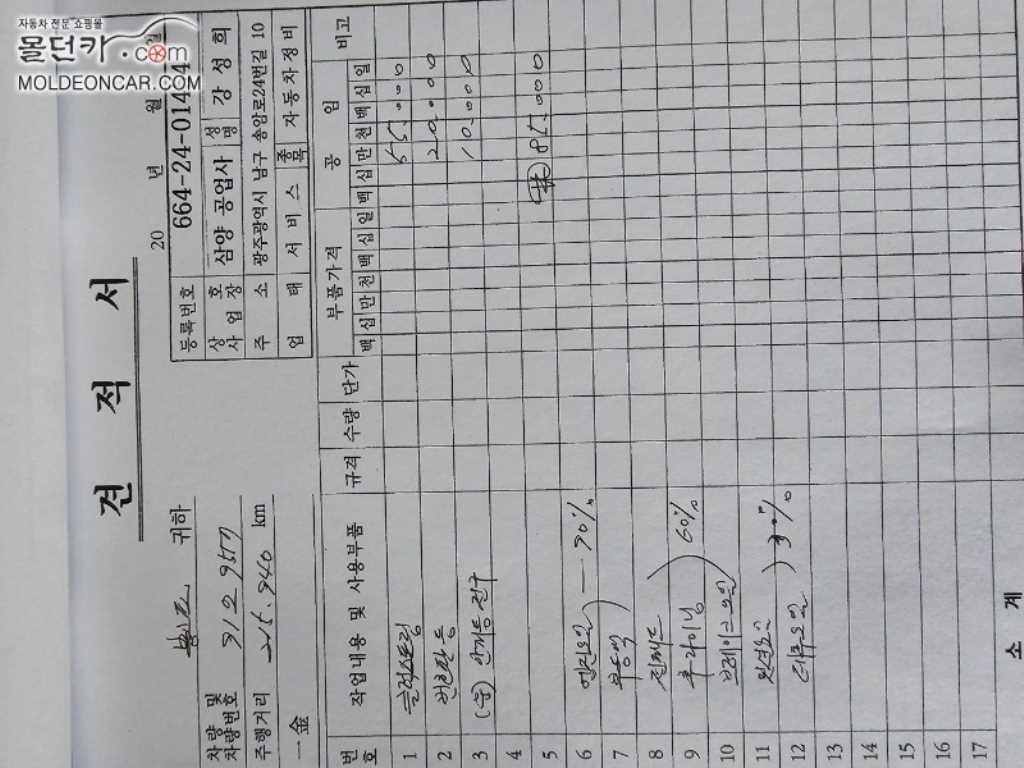 자동차 전문 쇼핑몰
몰던카.com
MOLDEONCAR.COM
견 적 서
20 년 월
봉고 귀하
차량 및 차량번호
주행거리 215.940 km
一金
등록번호 664-24-014
상호 삼양 공업사 성명 강성희
사업장
주 소 광주광역시 남구 송암로24번길 10
업 태 서비스 종목 자동차정비
번호 작업내용 및 사용부품 규격 수량 단가 부품가격 공임 비고
백 십 만 천 백 십 일 백 십 만 천 백 십 일
1 55.000
2 번호판 등 20.000
3 안개등 전구 10.000
4
5 85.000
6 엔진오일 70%
7 부동액
8
9 후라이닝 60%
10 브레이크오일
11 밋션오일
12 데후오일
13
14
15
16
17
소 계